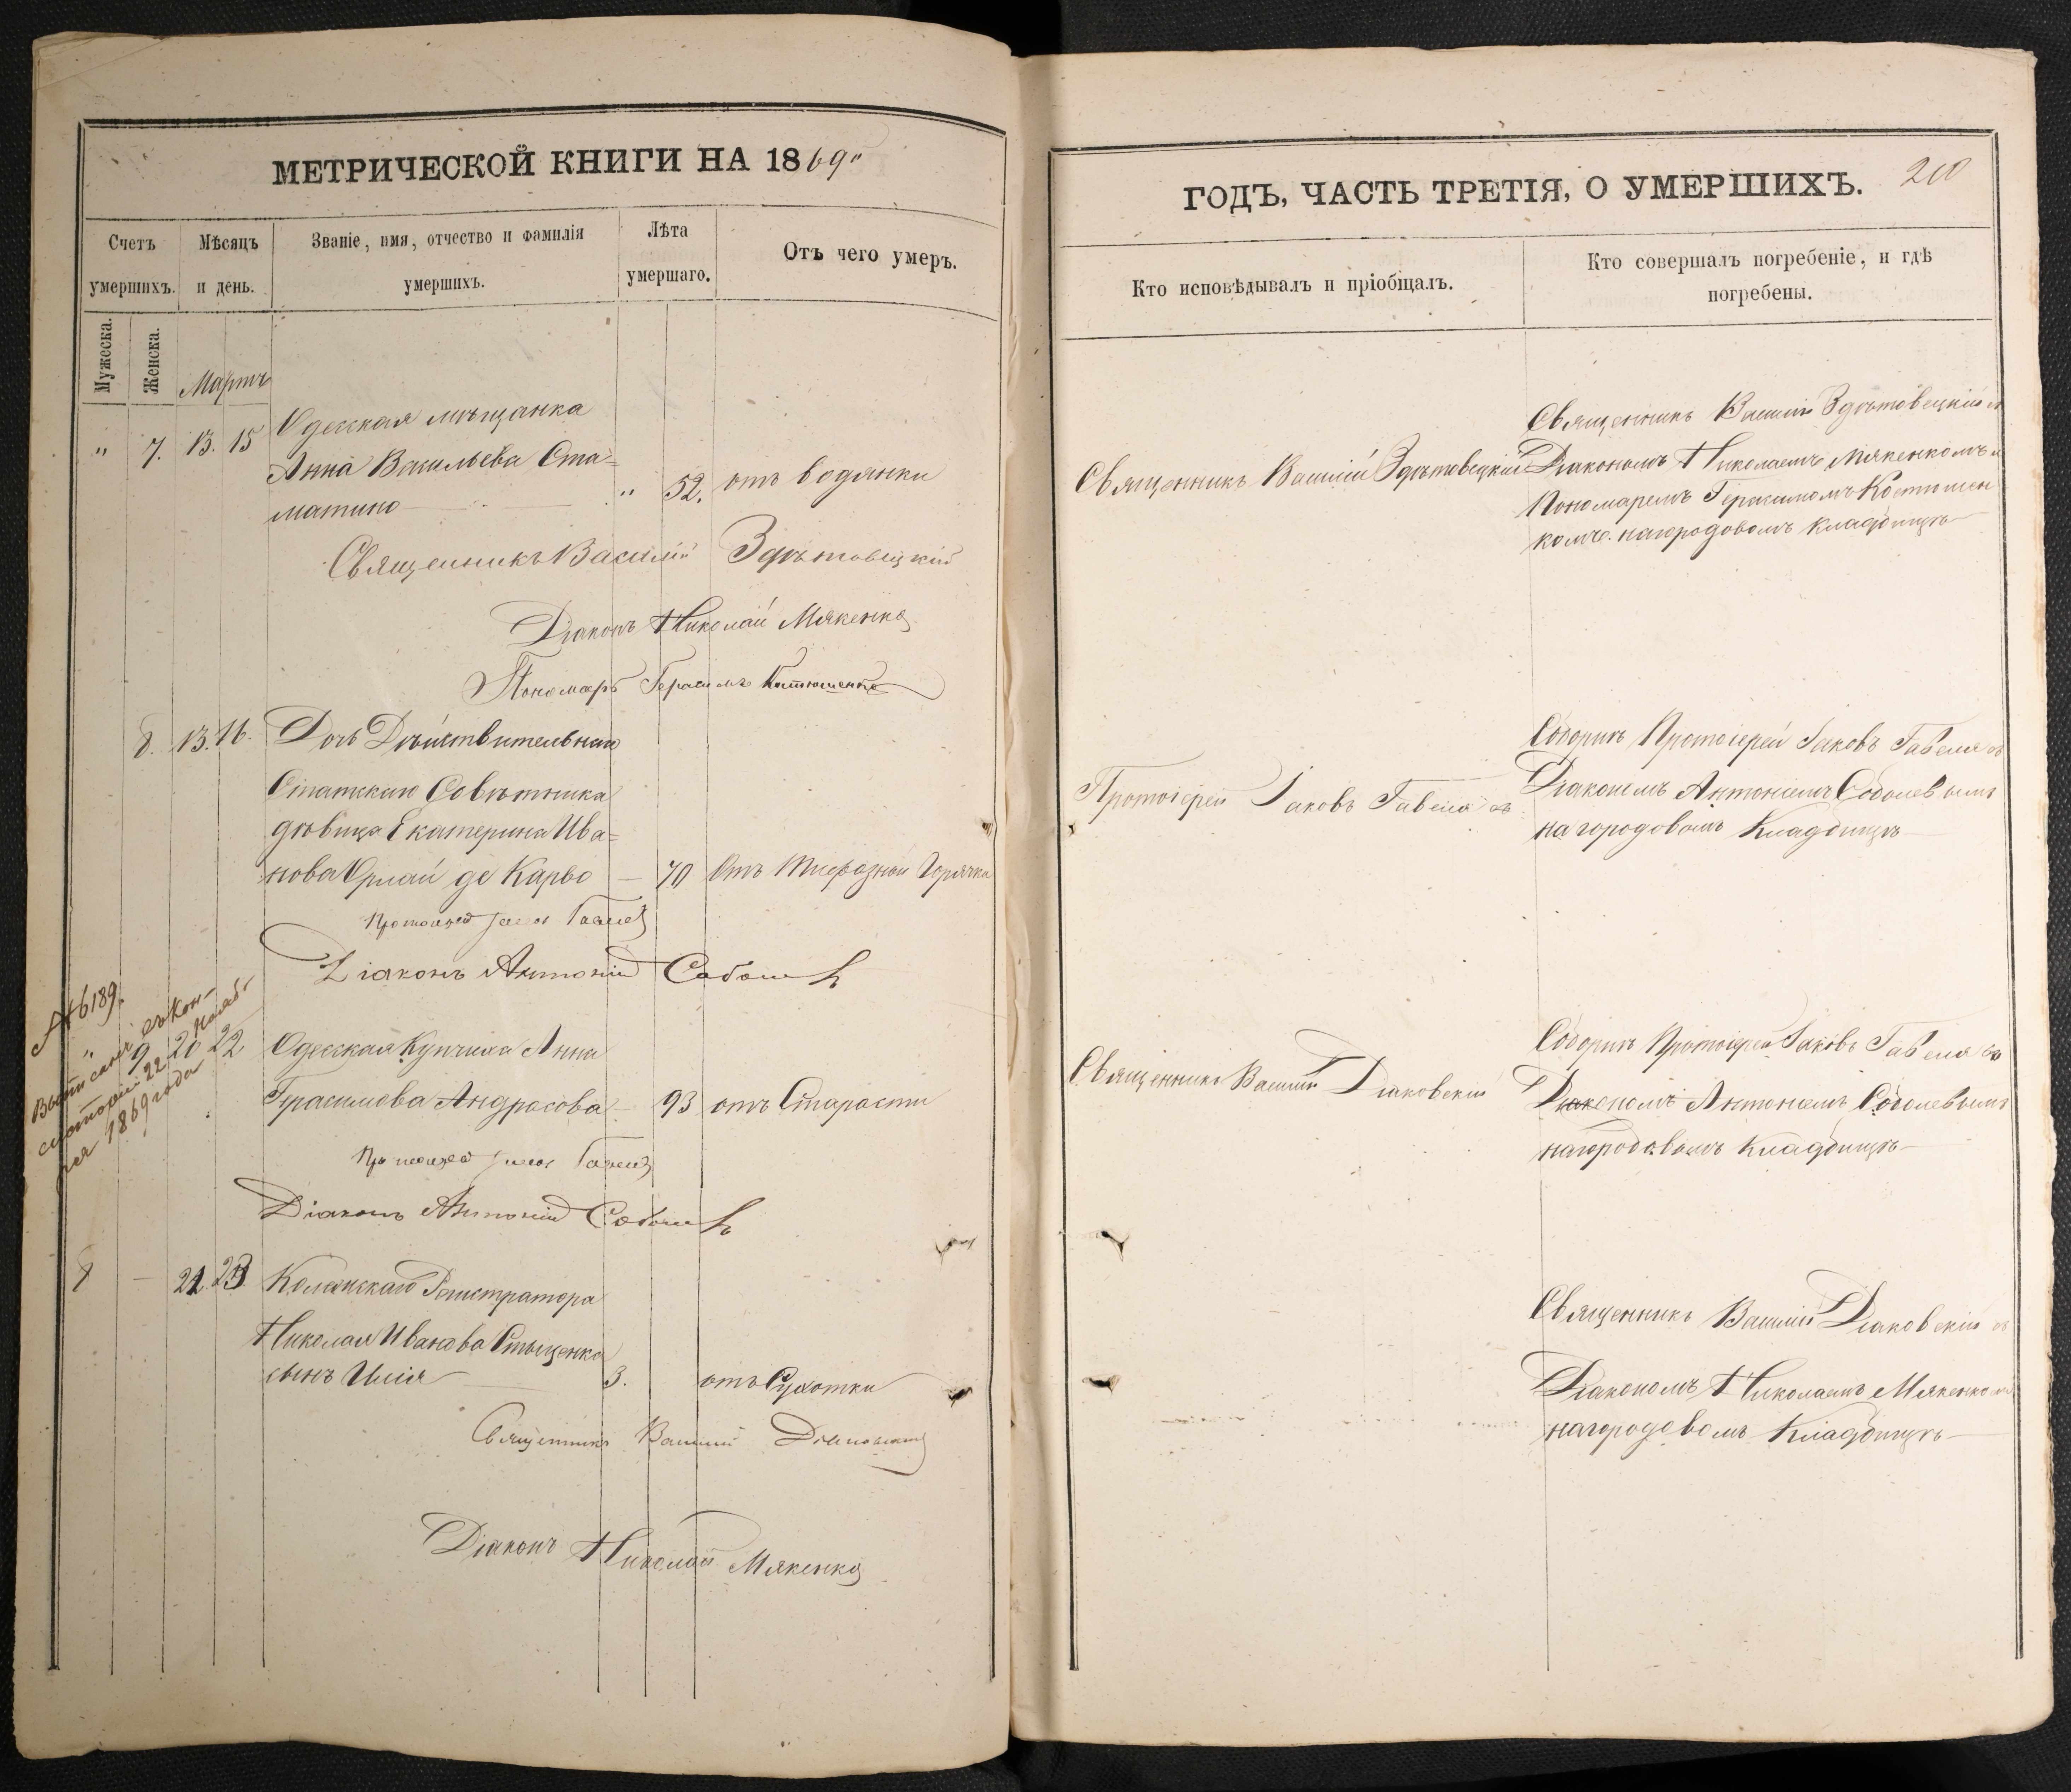 МЕТРИЧЕСКОЙ КНИГИ НА 1869
Счетъ умершихъ.
Мѣсяцъ и день.
Званіе, имя, отчество и фамилія умершихъ.
Лѣта умершаго.
Отъ чего умеръ.
Мужеска.
Женска.
Мартъ
" 7. 13. 15
Одесская мѣщанка
Анна Васильева Ста=
матино " 52. отъ водянки
Священникъ Василій Здѣтовецкій
Діаконъ Николай Мякенко
Пономарь Герасимъ Костюшенко
8. 13. 16. Дочь Дѣйствительнаго
Статскаго Совѣтника
дѣвица Екатерина Ива=
нова Орлай де Карво — 70 Отъ тифозной Горячки
Протоіерей Іаковъ Гавель
Діаконъ Антоній Соболевъ
№ 6189.
Выписано съ кон-
систоріи 22 Нояб-
ря 1869 года
" 9 20 22 Одесская Купчиха Анна
Герасимова Андросова — 93 отъ Старости
Протоіерей Іаковъ Гавель
Діаконъ Антоній Соболевъ
8 — 21. 23. Колежскаго Регистратора
Николая Иванова Стыценко
сынъ Илія — 3. отъ Сухотки
Священникъ Василій Діаковскій
Діаконъ Николай Мякенко
ГОДЪ, ЧАСТЬ ТРЕТІЯ, О УМЕРШИХЪ.
200
Кто исповѣдывалъ и пріобщалъ.
Кто совершалъ погребеніе, и гдѣ погребены.
Священникъ Василій Здѣтовецкій
Священникъ Василій Здѣтовецкій съ
Діакономъ Николаемъ Мякенкомъ и
Пономаремъ Герасимомъ Костюшен
комъ. на городовомъ кладбищѣ—
Протоіерей Іаковъ Гавель
Соборнѣ Протоіерей Іаковъ Гавель съ
Діакономъ Антоніемъ Соболевымъ
на городовомъ Кладбищѣ—
Священникъ Василій Діаковскій
Соборнѣ Протоіерей Іаковъ Гавель съ
Діакономъ Антоніемъ Соболевымъ
на городовомъ Кладбищѣ—
Священникъ Василій Діаковскій съ
Діакономъ Николаемъ Мякенкомъ
на городовомъ Кладбищѣ—